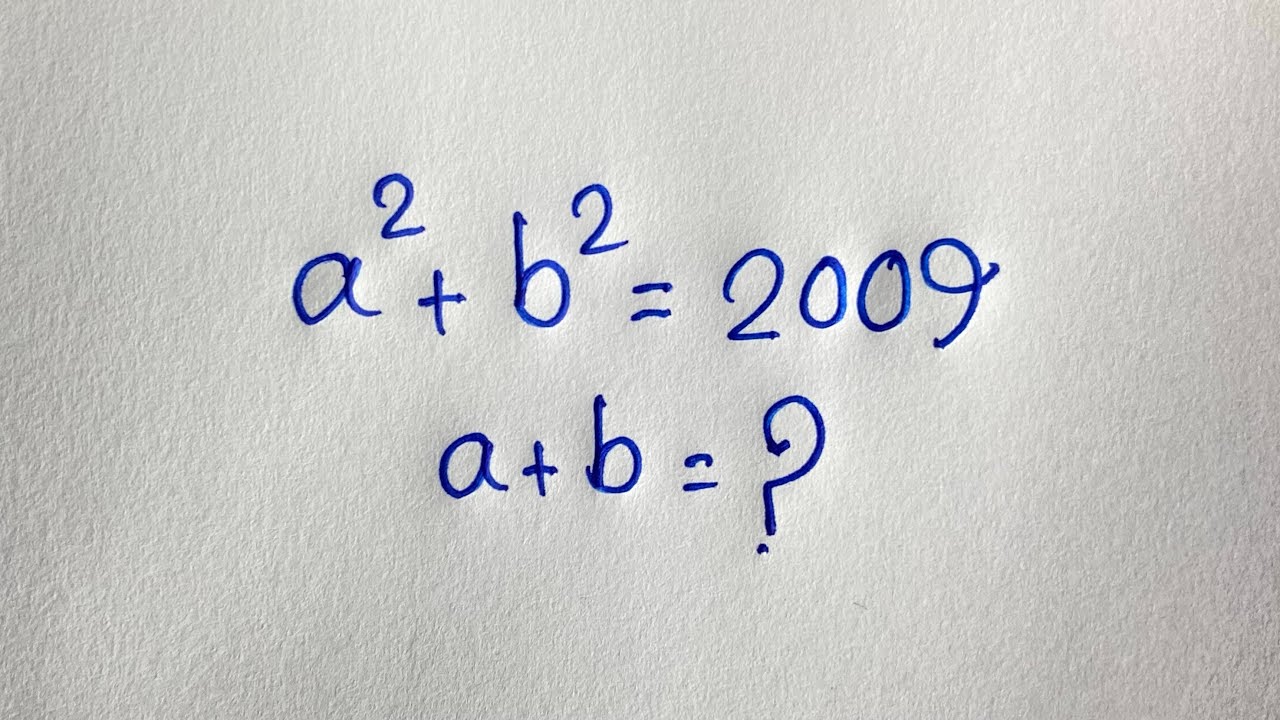 a² + b² = 2009
a + b = ?